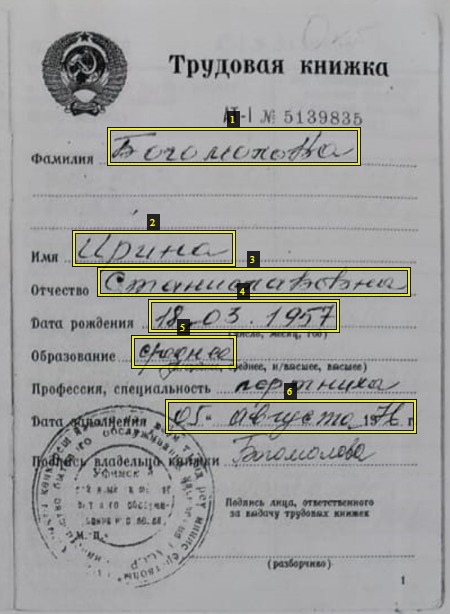 Трудовая книжка
АТ-I № 5139835
1
Фамилия Богомолова
2
Имя Ирина
3
Отчество Станиславовна
4
Дата рождения 18.03.1957
(число, месяц, год)
5
Образование среднее
среднее, н/высшее, высшее)
Профессия, специальность портниха
6
Дата заполнения 05. августа 1976 г
Подпись владельца книжки Богомолова
Подпись лица, ответственного
за выдачу трудовых книжек
М. П.
(разборчиво)
1